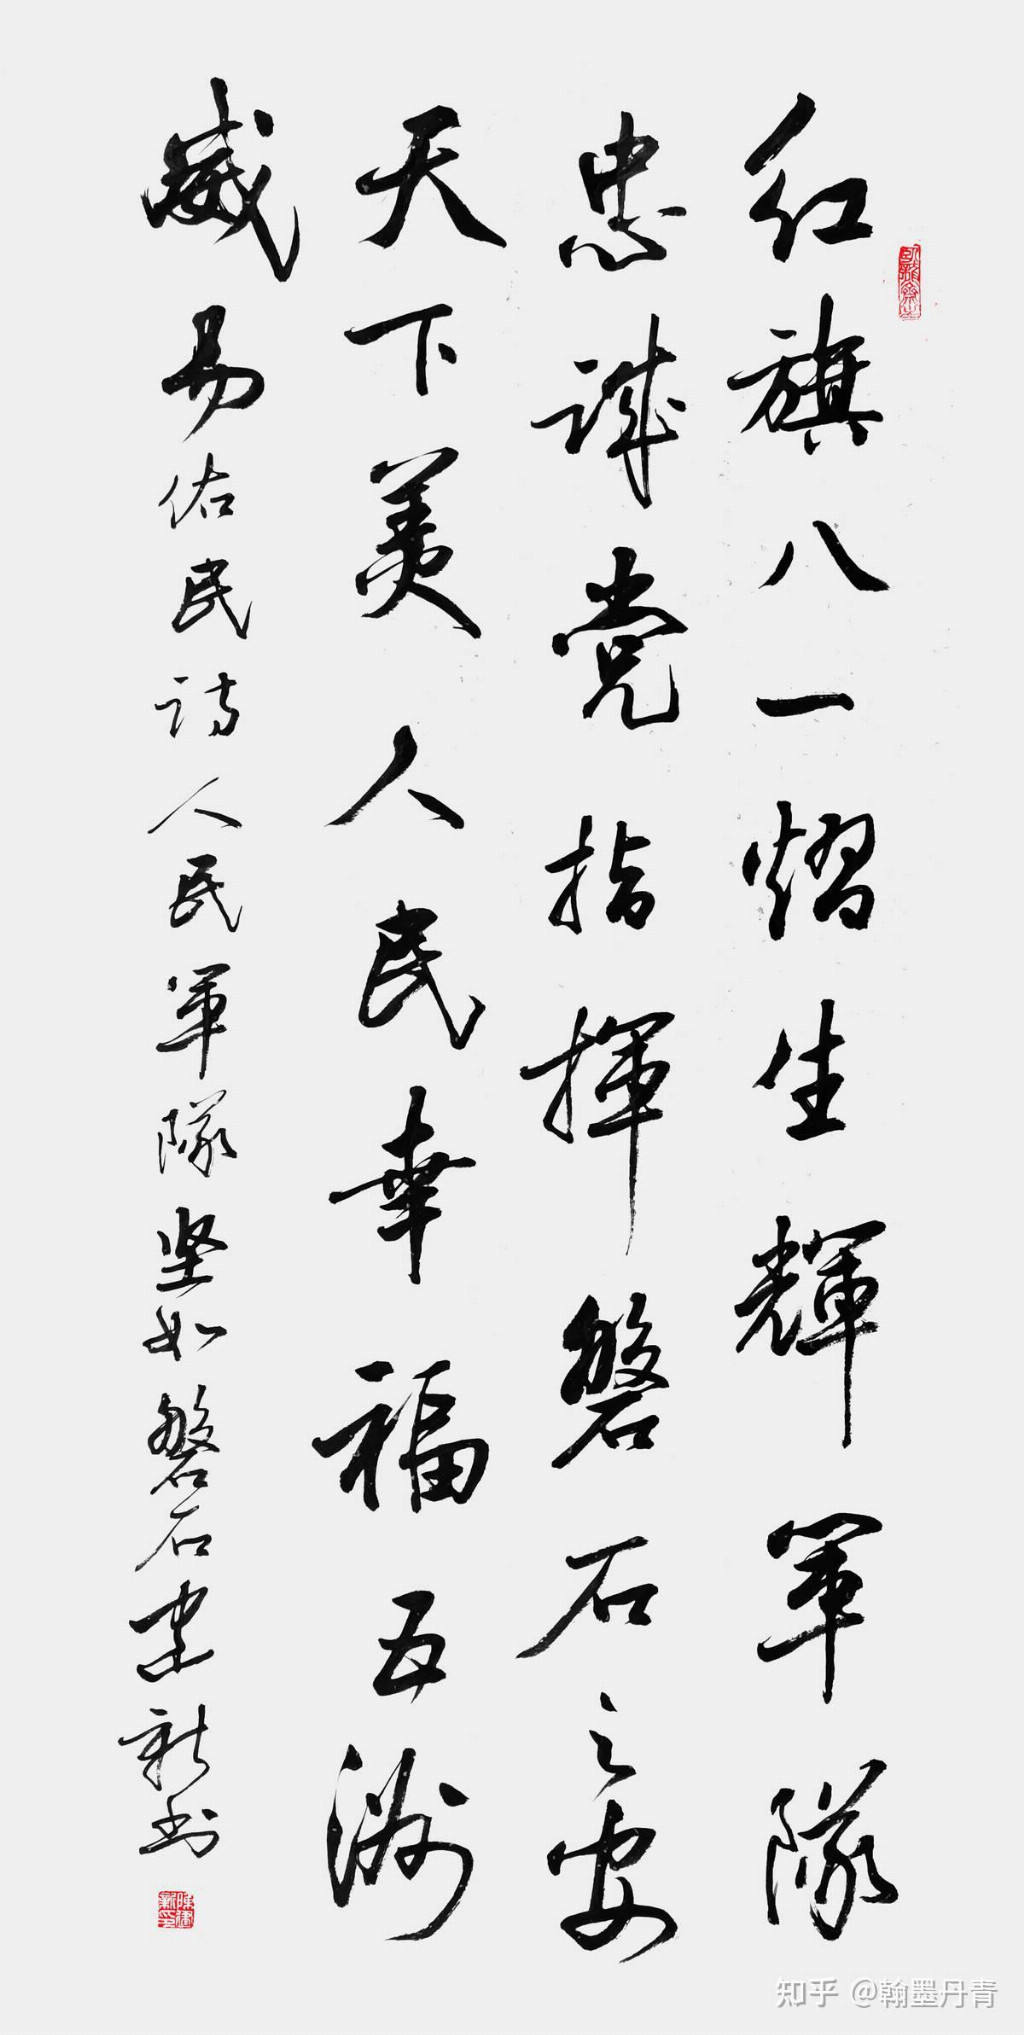 红旗八一熠生輝軍隊
忠诚党指揮磐石之安
天下美人民幸福五洲
威易佑民诗人民軍隊坚如磐石建新书
知乎 @翰墨丹青